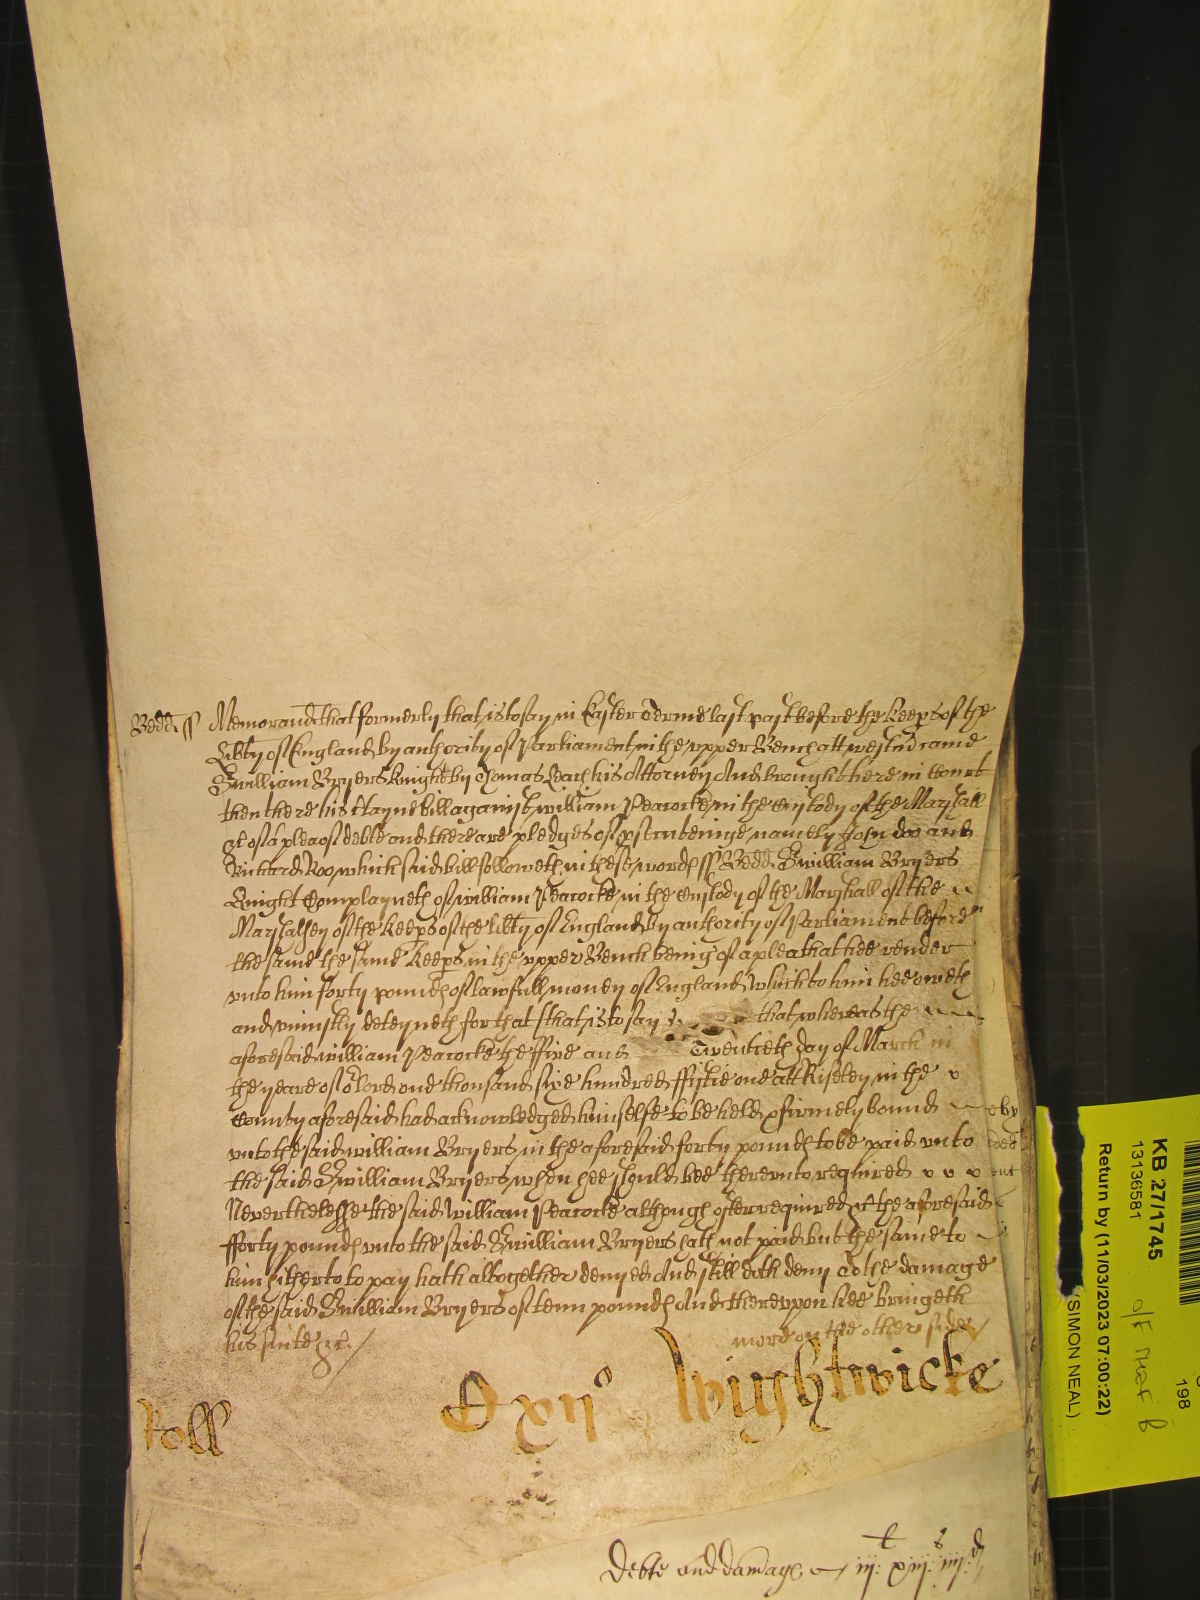 Bedd ss Memorand that formerly that is to say in Easter Terme last past before the Keeps of the
Libty of England by authority of Parliament in the upper Bench att Westm came
Sr william Bryers Knight by Thomas Leach his Attorney And brought here in Court
then there his ctayne bill against william Peacocke in the Custody of the Marshall
&c of a plea of debte and there are pledges of psecuteinge namely John doo and
Richard Roo which said bill followeth in these words ss Bedd Sr william Bryers
Knight Complayneth of william Peacocke in the Custody of the Marshall of the
Marshalsey of the Keeps of the libty of England by authority of Parliament before
the same the same Keeps in the upper Bench being of a plea that hee render
unto him forty pounds of lawfull money of England which to him hee oweth
and uniustly deteyneth for that that is to say that whereas the
aforesaid william Peacocke the ffive and Twentieth day of March in
the yeare of or Lord one thousand sixe hundred ffiftie one att Riseley in the
County aforesaid had acknowledged himselfe to be held & firmely bound
unto the said william Bryers in the aforesaid forty pounds to be paid unto
the said Sr william Bryers when hee should bee thereunto required
Neverthelesse the said william Peacocke although often required &c the aforesaid
fforty pounds unto the said Sr william Bryers hath not paid but the same to
him hitherto to pay hath altogether denyed And still doth deny To the damage
of the said Sr william Bryers of tenn pounds And thereuppon hee bringeth
his suite &c /
more on the other side /
Roll Cxijo Wightwicke
Debte and damage iij: xiij: iiij:
l s d
KB 27/1745
13136581
Return by (11/03/2023 07:00:22)
(SIMON NEAL)
198